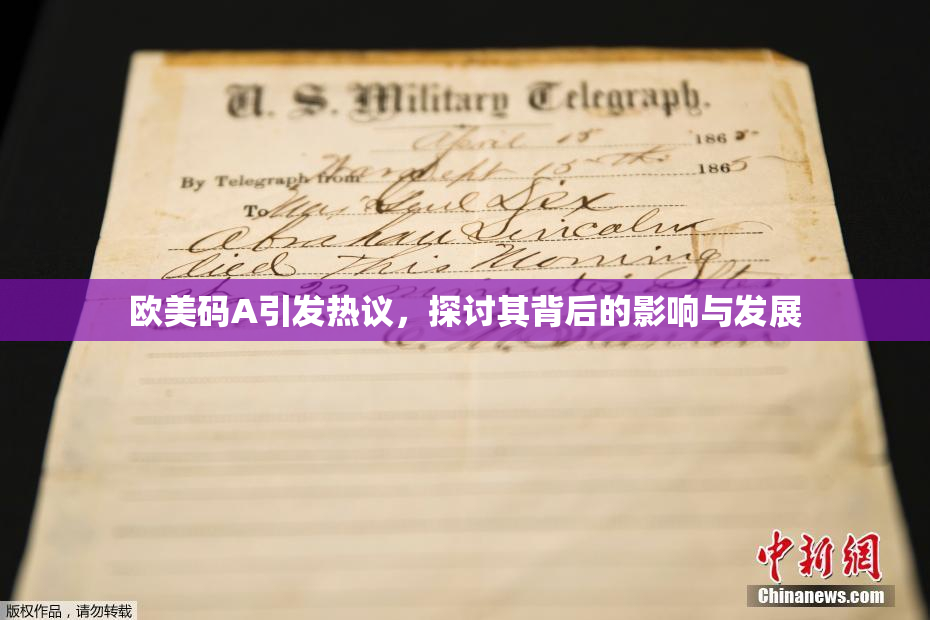 U. S. Military Telegraph.
April 15 1865
By Telegraph from War Dept 15th 1865
To Maj Genl Dix
Abraham Lincoln
died This Morning
at 22 minutes after
欧美码A引发热议，探讨其背后的影响与发展
E. M. Stanton
中新网
Chinanews.com
版权作品，请勿转载